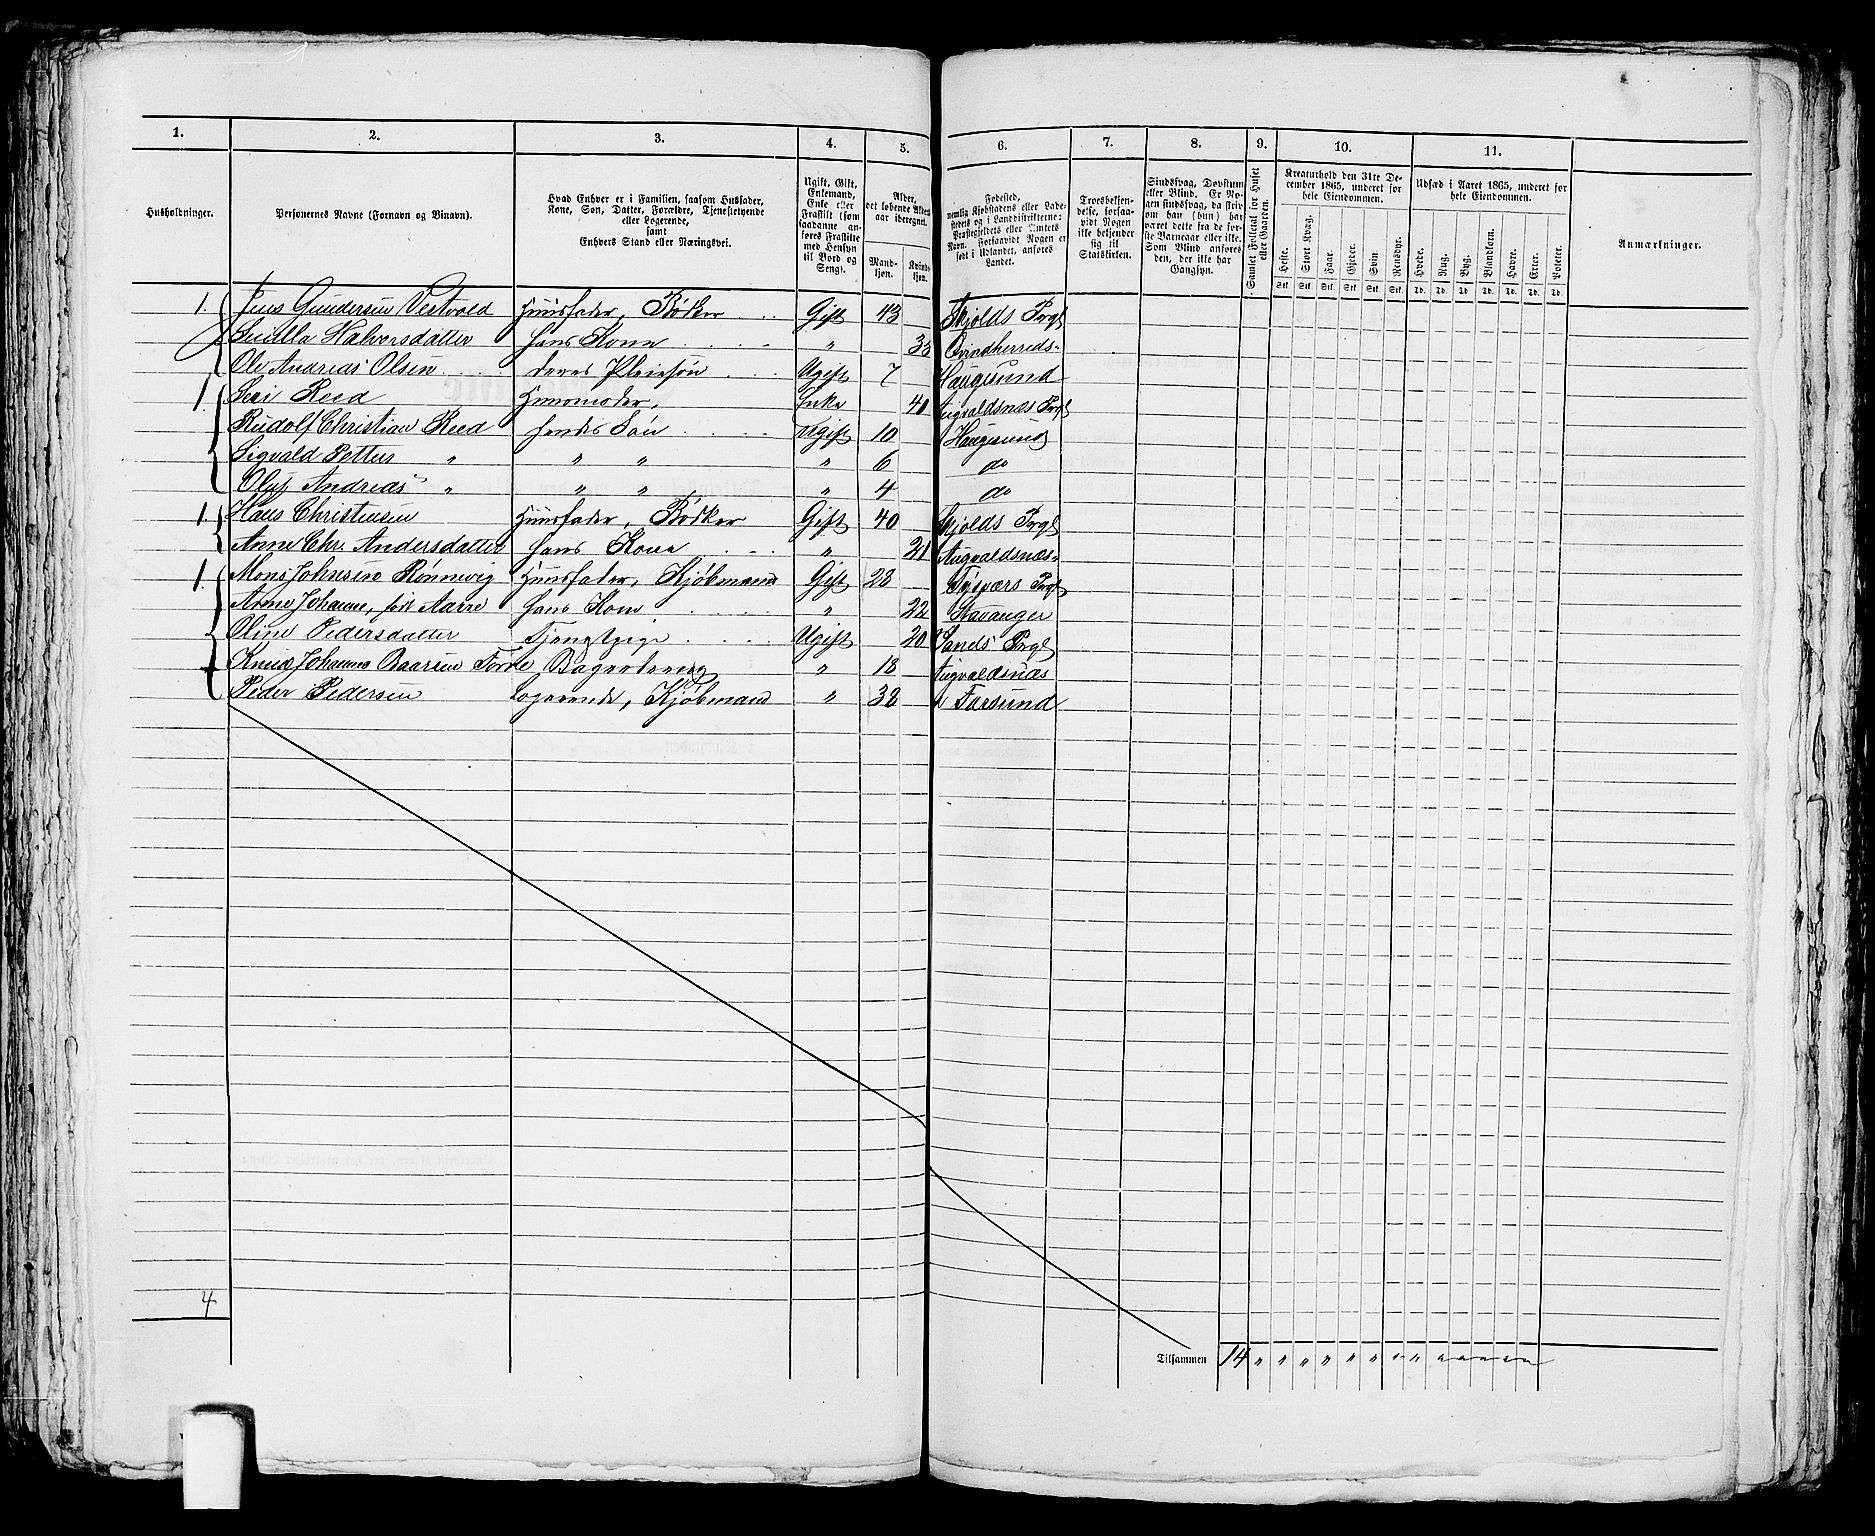 1. 2. 3. 4. 5. 6. 7. 8. 9. 10. 11.
Husholdninger.
Personernes Navne (Fornavn og Binavn).
Hvad Enhver er i Familien, saasom Husfader,
Kone, Søn, Datter, Forældre, Tjenestetyende
eller Logerende,
samt
Enhvers Stand eller Næringsvei.
Ugift, Gift,
Enkemand,
Enke eller
Fraskilt (som
saadanne an-
føres Fraskilte
med Hensyn
til Bord og
Seng).
Alder,
det løbende Alders-
aar iberegnet.
Mand-
kjøn.
Kvind-
kjøn.
Fødested,
nemlig Kjøbstadens eller Lade-
stedets og i Landdistrikterne:
Præstegjeldets eller Amtets
Navn. Forsaavidt Nogen er
født i Udlandet, anføres
Landet.
Troesbekjen-
delse, forsaa-
vidt Nogen
ikke bekjender
sig til
Statskirken.
Sindssvag, Døvstum
eller Blind. Er No-
gen sindssvag, da skriv
om han (hun) har
været dette fra de for-
ste Barneaar eller ikke.
Som Blind anføres
den, der ikke har
Gangsyn.
Samlet Folketal for Huset
eller Gaarden.
Kreaturhold den 31te De-
cember 1865, underet for
hele Eiendommen.
Heste. Stort Kvæg. Faar. Gjeder. Svin. Rensdyr.
Stk. Stk. Stk. Stk. Stk. Stk.
Udsæd i Aaret 1865, underet for
hele Eiendommen.
Hvede. Rug. Byg. Blandkorn. Havre. Erter. Poteter.
Td. Td. Td. Td. Td. Td. Td.
Anmærkninger.
1. Jens Gundersen Vestvold Huusfader, Bødker Gift 43 Skjolds Prgl
Halvorsdatter Hans Kone " 33 Qvindherreds-
Ole Andreas Olsen deres Pleiesøn Ugift 7 Haugesund
1. Siri Reed Huusmoder, Enke 40 Augvaldsnæs Prgl
Rudolf Christian Reed hendes Søn Ugift 10 Haugesund
Sigvald Petter " " " " 6 do
Oluf Andreas " " " " 4 do
1. Hans Christensen Huusfader, Bødker Gift 40 Skjolds Prgl
Anne Chr. Andersdatter Hans Kone " 21 Augvaldsnæs-
1. Mons Johnsen Rønnevig Huusfader, Kjøbmand Gift 28 Prgl
Anne Johanne, født Aarre Hans Kone " 22 Stavanger
Oline Pedersdatter Tjenstpige Ugift 20 Sands Prgl
Knud Johannes Baarsen Bagerdreng " 18 Augvaldsnæs
Peder Pedersen Logerende, Kjøbmand " 38 Farsund
4
Tilsammen 14 " " " " " " " " " " " " "